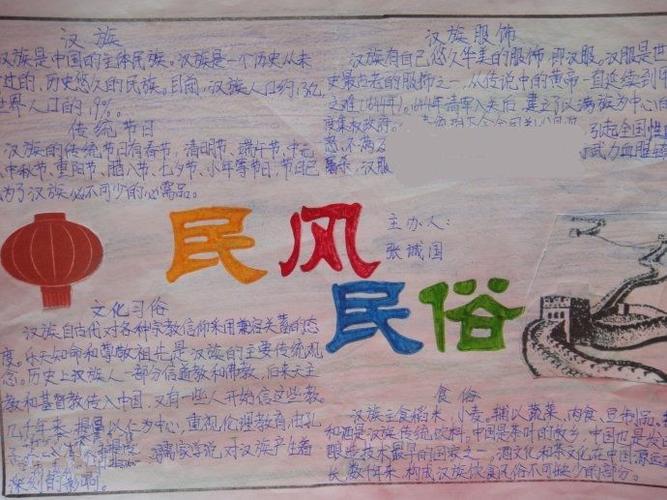 汉族
汉族是中国的主体民族。汉族是一个历史从未
过的,历史悠久的民族。目前,汉族人口约13亿
世界人口的19%。
传统节日
汉族的传统节日有春节,清明节、端午节、中元
中秋节、重阳节、腊八节、七夕节、小年等节日,节日已
为了汉族必不可少的必需品。
汉族服饰
汉族有自己悠久华美的服饰,即汉服。汉服是世
史最古老的服饰之一,从传说中的黄帝一直延续到
之难(1644年)。1644年清军入关后,建立了以满族为中心
度集权政府。
引起全国性
怒,不满
武力血腥
屠杀,汉服
民风
民俗
主办人:
张诚国
文化习俗
汉族自古代对各种宗教信仰采用兼容并蓄的态
度。乐天知命和尊敬祖先是汉族的主要传统观
念。历史上汉族人一部分信道教和佛教,后来天主
教和基督教传入中国,又有一些人开始信这些教。
几千年来,提倡以仁为中心,重视伦理教育,由孔
儒家学说,对汉族产生着
深刻的影响。
食俗
汉族主食稻米,小麦,辅以蔬菜、肉食、豆制品。
和酒是汉族传统饮料。中国是茶叶的故乡,中国也是发
酿造技术最早的国家之一,酒文化和茶文化在中国源远
长,数千年来,构成汉族饮食习俗不可缺少的部分。